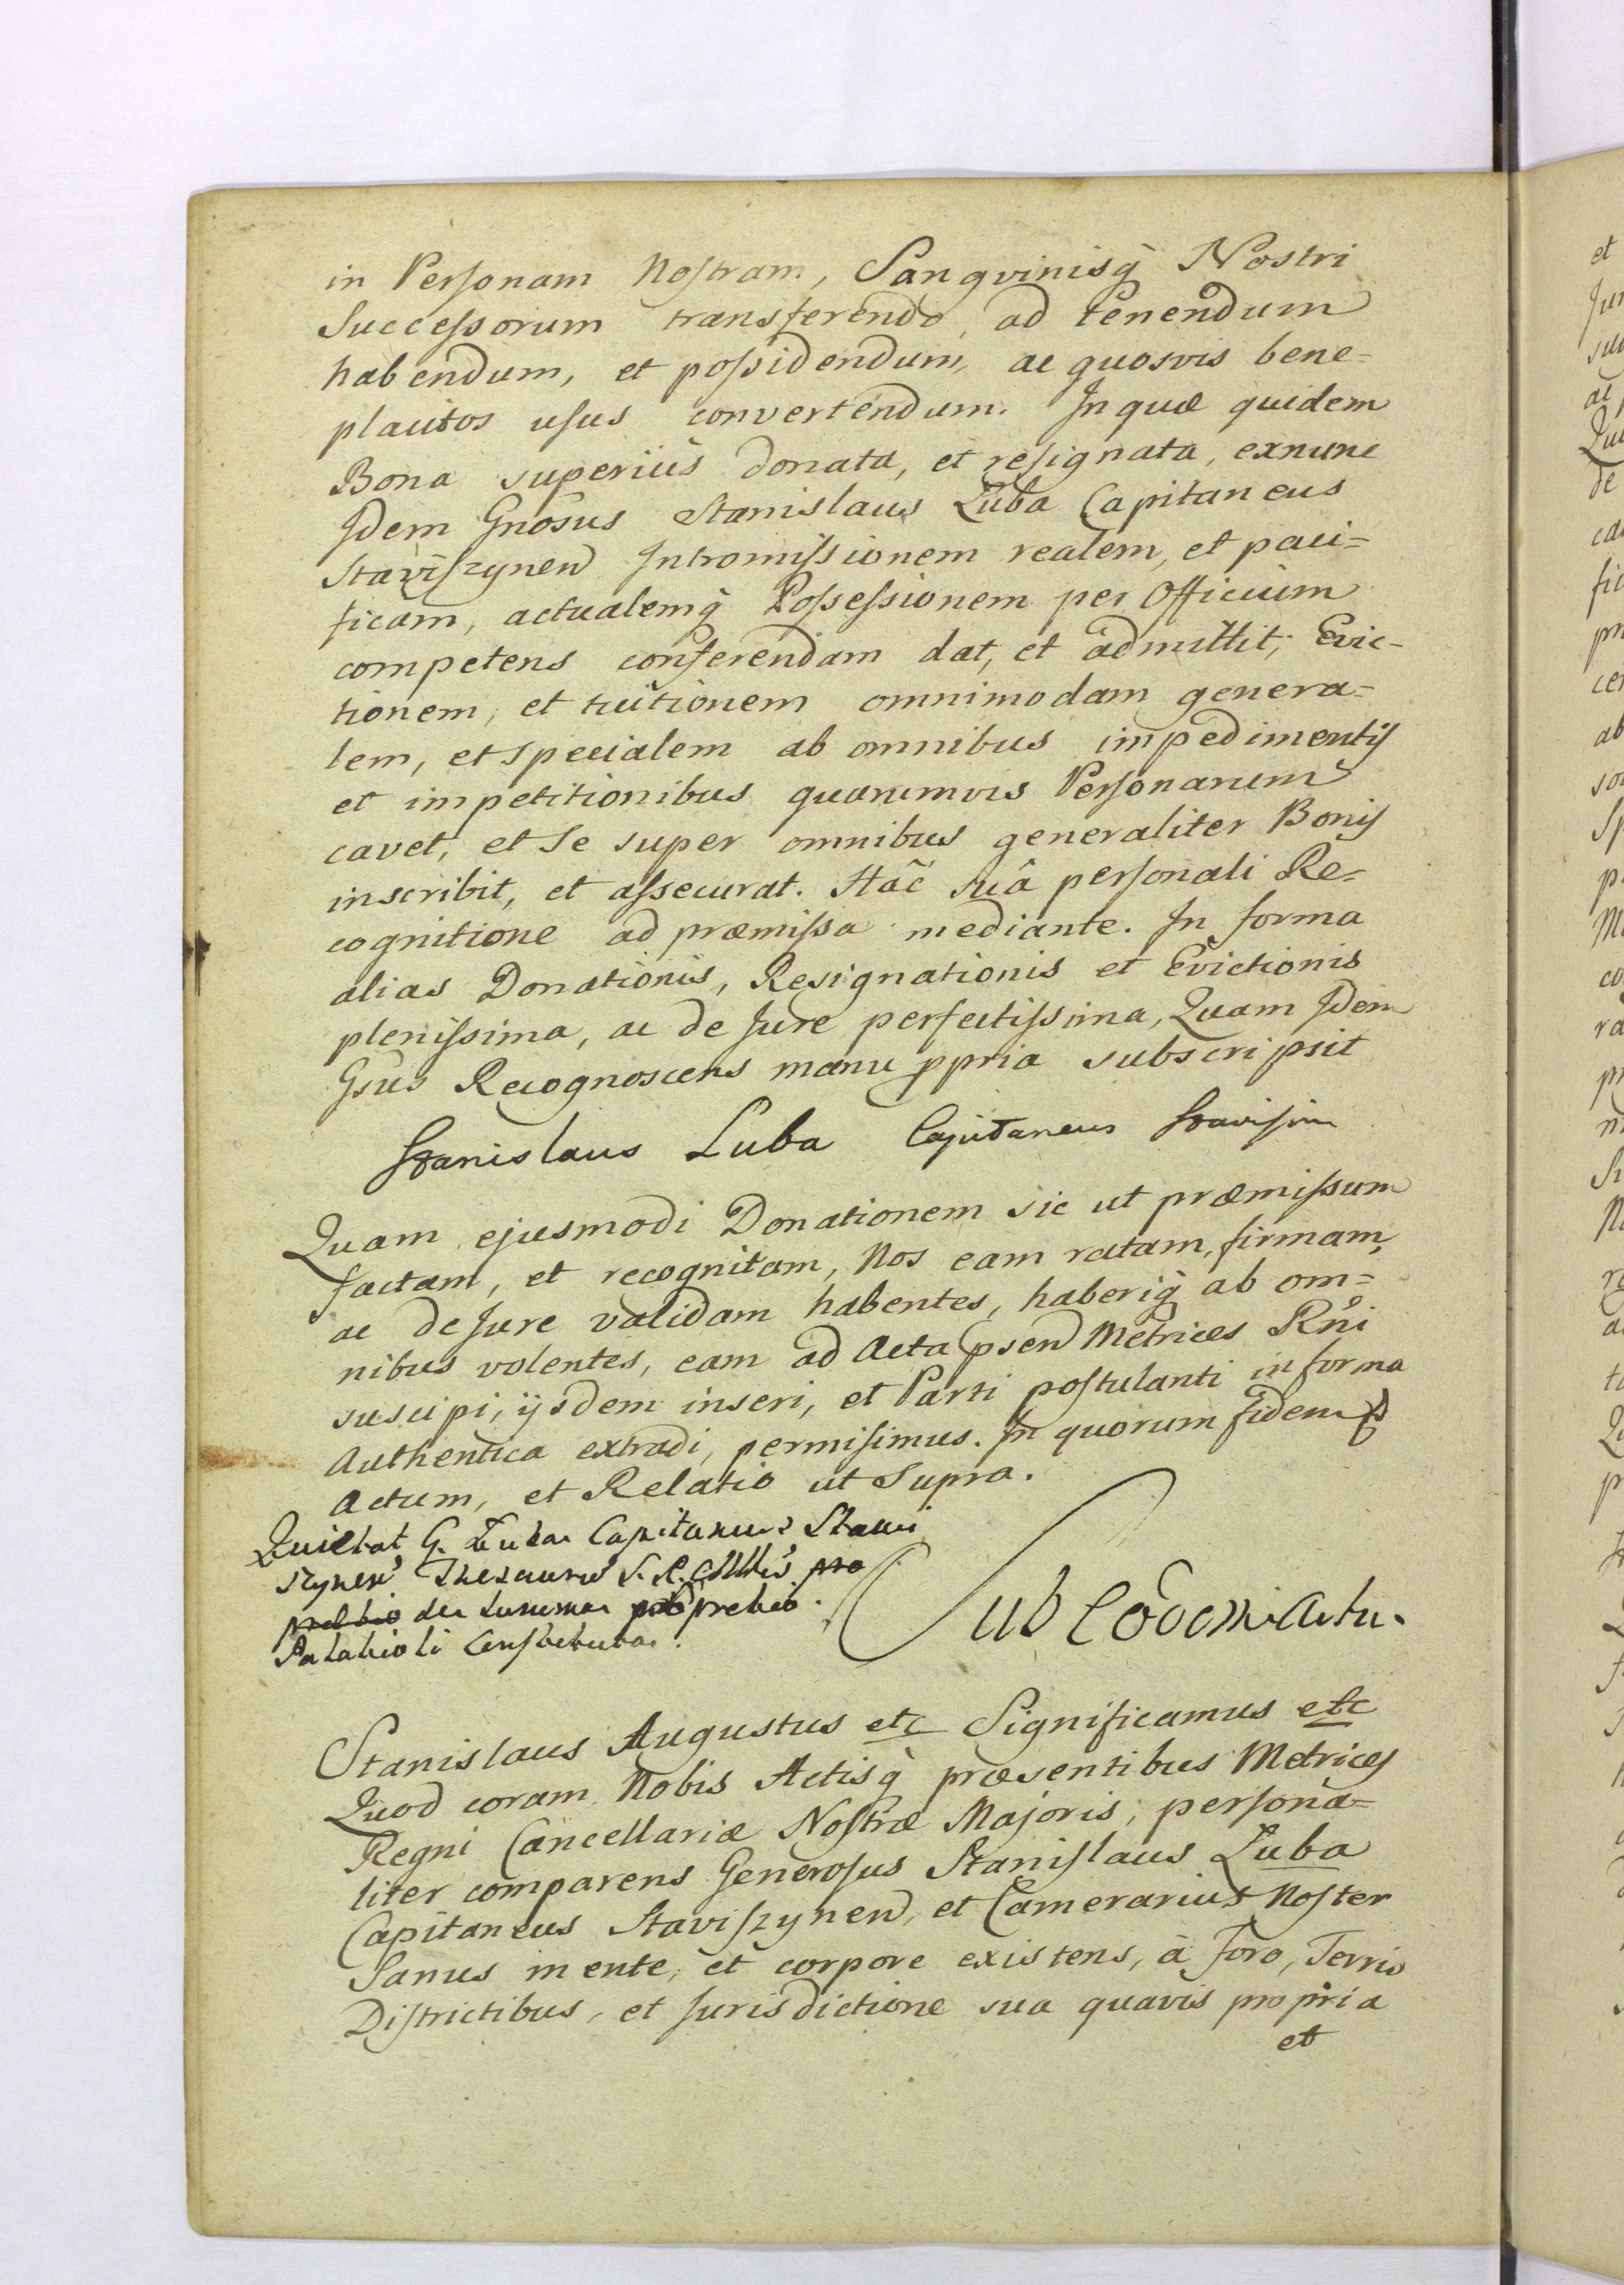 in Personam Nostram, Sanqvinisq̀ Nostri
Successorum transferendo, ad tenendum
habendum, et possidendum, ac quosvis bene=
placitos usus convertendum. In quæ quidem
Bona superiùs donata, et resignata, exnunc
Idem Gnosus Stanislaus Łuba Capitaneus
Staviszynen Intromissionem realem, et paci=
ficam, actualemq̀ Possessionem per Officium
competens conferendam dat, et admittit, Evic=
tionem, et tuitionem omnimodam genera=
lem, et specialem ab omnibus impedimentis
et impetitionibus quarumvis Personarum
cavet, et se super omnibus generaliter Bonis
inscribit, et assecurat. Hâc suâ personali Re=
cognitione ad præmissa mediante. In forma
alias Donationis, Resignationis et Evictionis
plenissima, ac de Jure perfectissima, Quam Idem
Gsus Recognoscens manu ppria subscripsit
Stanislaus Luba Capitaneus
Quam ejusmodi Donationem sic ut præmissum
factam, et recognitam, Nos eam ratam, firmam,
ac de Jure validam habentes, haberiq̀ ab om=
nibus volentes, eam ad Acta psen Metrices Rni
suscipi, ijsdem inseri, et Parti postulanti in forma
Authentica extradi, permisimus. In quorum fidem
Actum, et Relatio ut Supra.
Quietat G. Łuba Capitaneus Stavi
szynen Thesaurum S. R. pro
de summa pretio
Palatioli
Sub Eodem Actu.
Stanislaus Augustus etc Significamus etc
Quod coram Nobis Actisq̀ præsentibus Metrices
Regni Cancellariæ Nostræ Majoris, persona=
liter comparens Generosus Stanislaus Łuba
Capitaneus Staviszynen, et Camerarius Noster
Sanus mente, et corpore existens, à foro, Terris
Districtibus, et Jurisdictione sua quavis propria
et